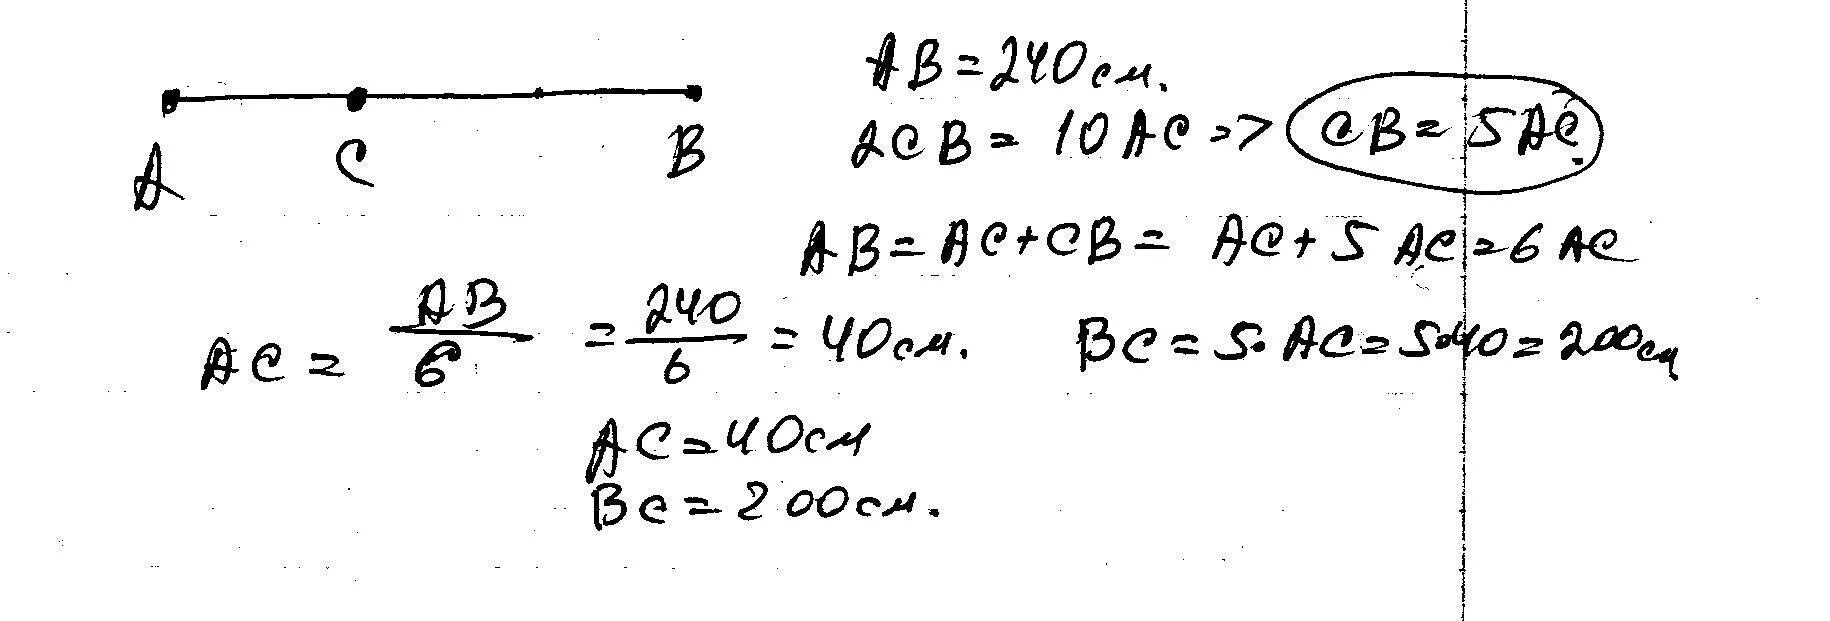 AB = 240 см.
A C B
2CB = 10 AC => CB = 5 AC.
AB = AC + CB = AC + 5 AC = 6 AC
AC = AB/6 = 240/6 = 40 см. BC = 5·AC = 5·40 = 200 см
AC = 40 см
BC = 200 см.